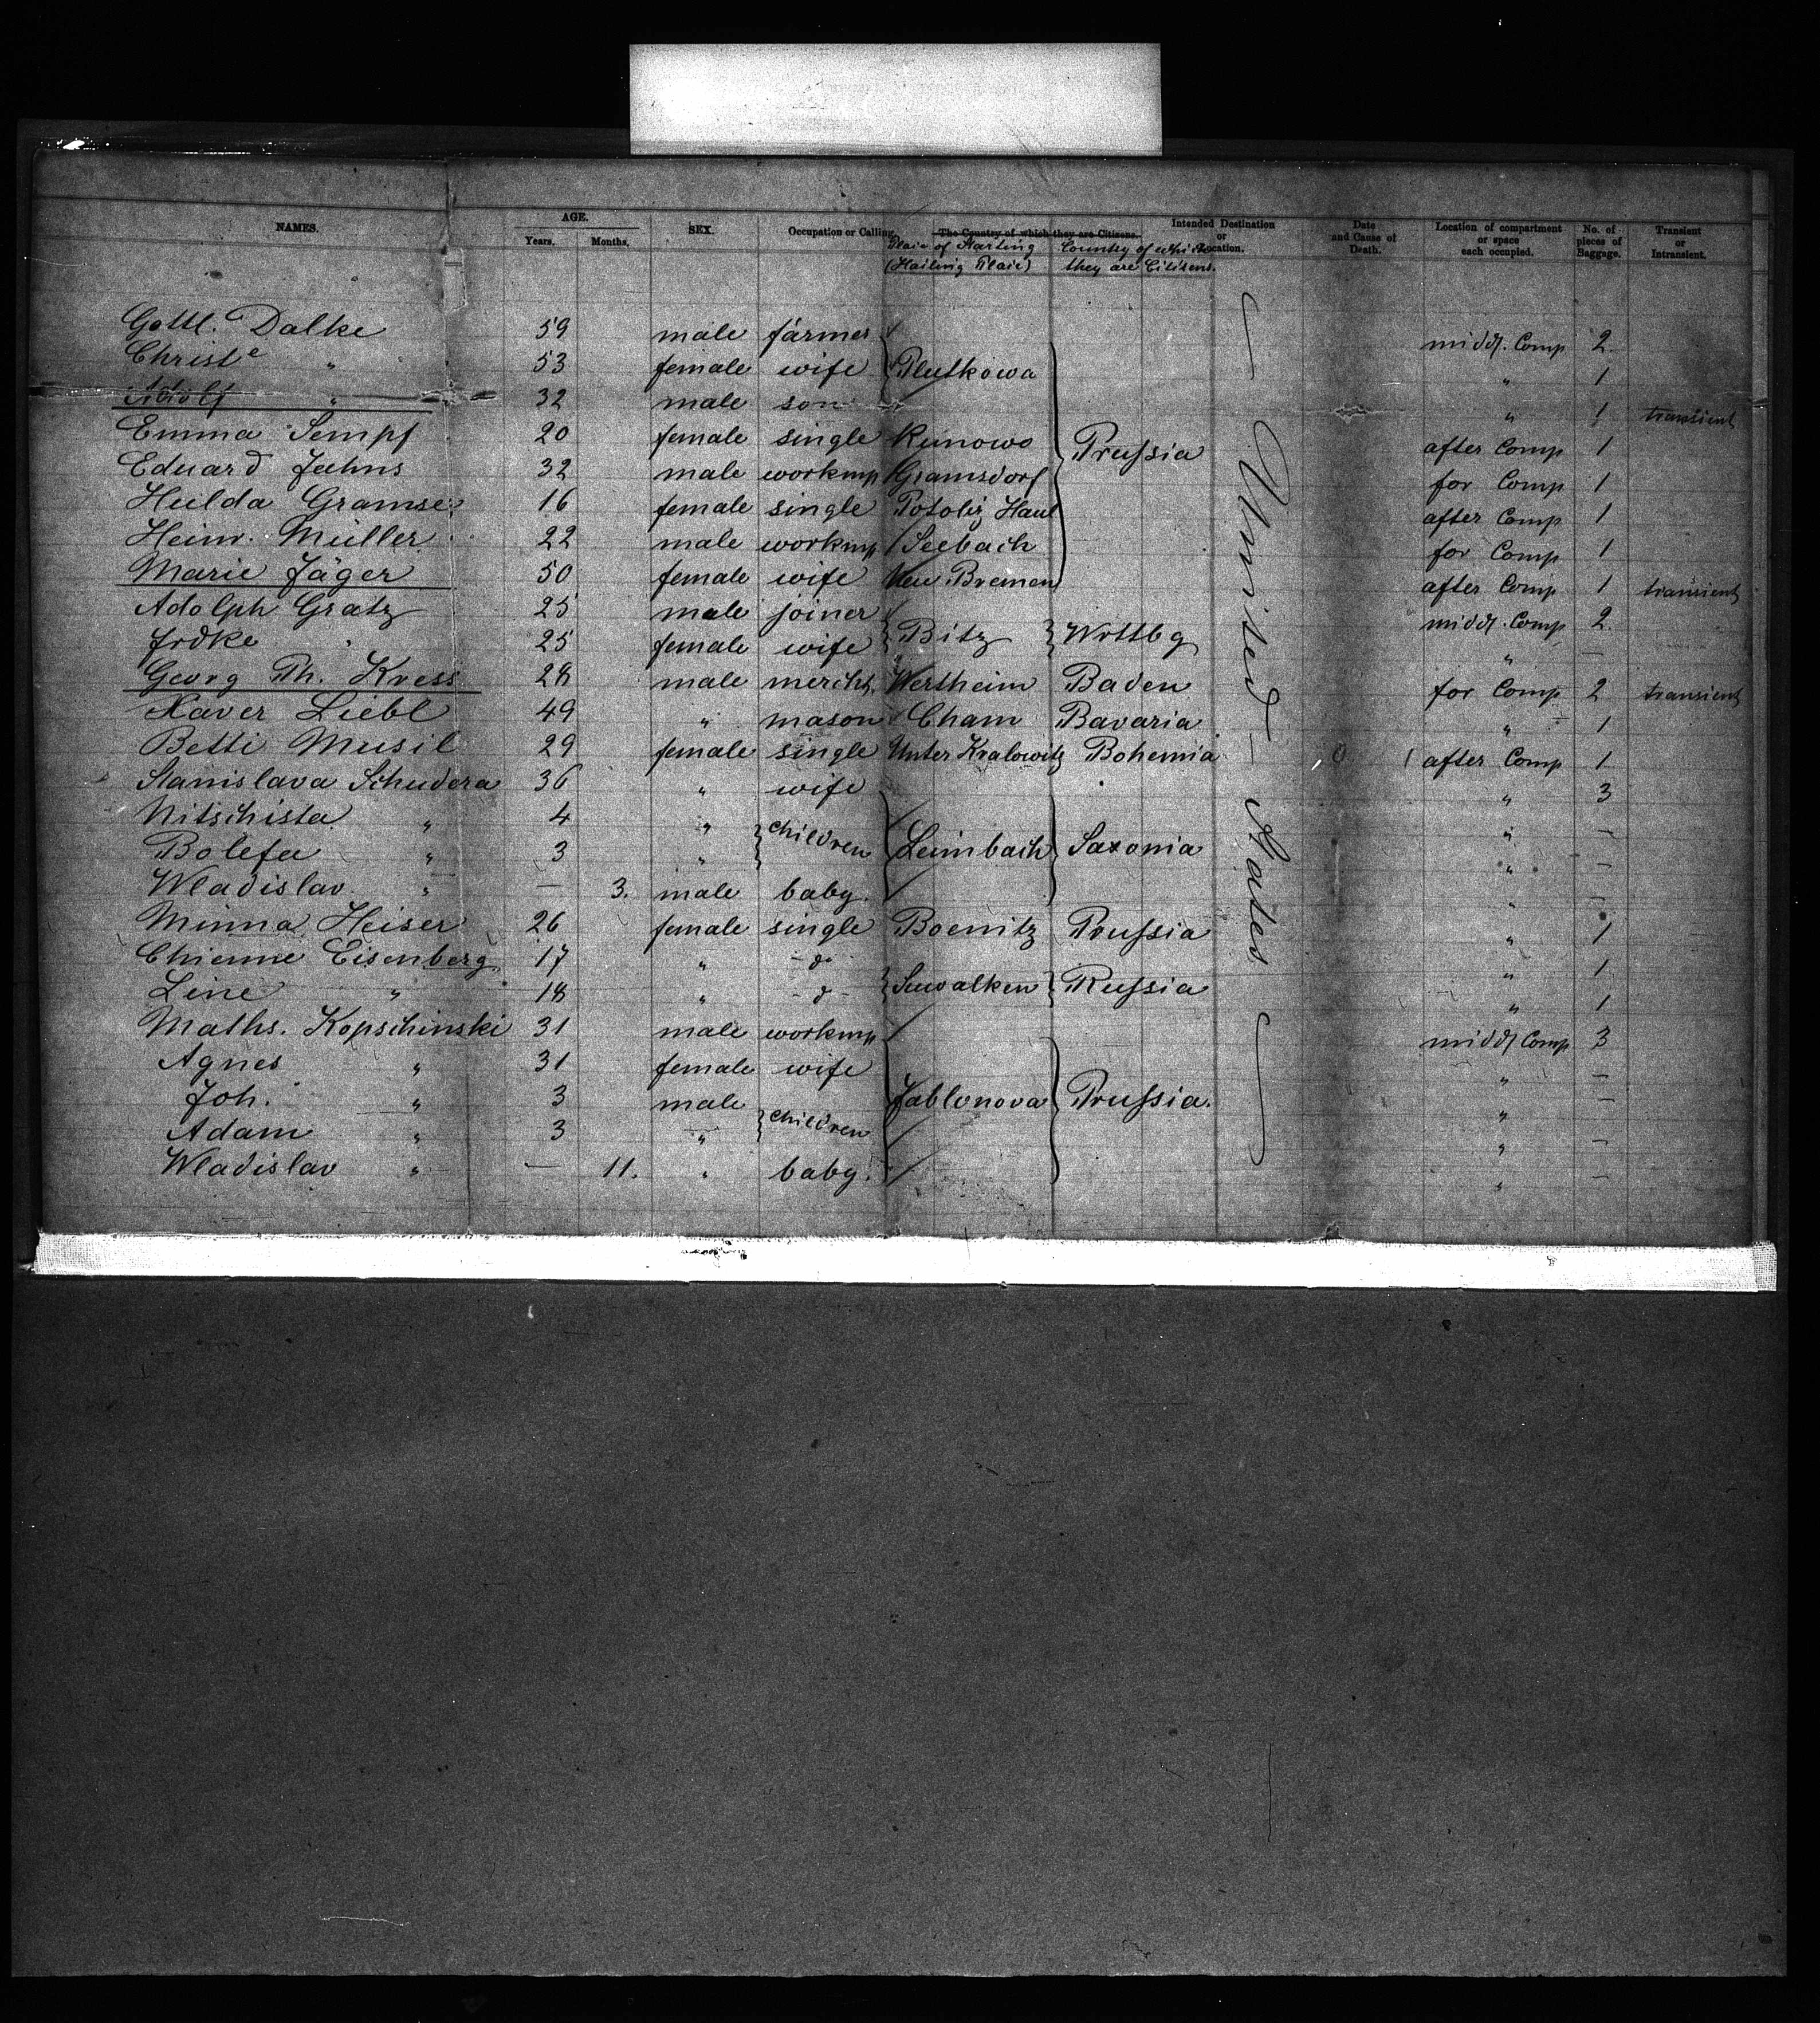 NAMES. AGE. Years. Months. SEX. Occupation or Calling. The Country of which they are Citizens. Intended Destination or Location. Date and Cause of Death. Location of compartment or space each occupied. No. of pieces of Baggage. Transient or Intransient.
Place of Starting (Hailing Place) Country of which they are Citizens.
Gottl. Dalke 59 male farmer middl. Comp 2
Christe " 53 female wife Plutkowa " 1
Adolf " 32 male son " 1 transient
Emma Sempf 20 female single Runowo Prussia after Comp 1
Eduard Jahns 32 male workmp Gramsdorf for Comp 1
Hulda Gramse 16 female single Haul after Comp 1
Heinr. Müller 22 male workmp Seebach for Comp 1
Marie Jäger 50 female wife New Bremen after Comp 1 transient
Adolph Gratz 25 male joiner middl. Comp 2
Frdke " 25 female wife Bitz Wrttbg " —
Georg Ph. Kress 28 male mercht. Wertheim Baden for Comp 2 transient
Xaver Liebl 49 " mason Cham Bavaria " 1
Betti Musil 29 female single Unter Kralowitz Bohemia after Comp 1
Stanislava Schudera 36 " wife " 3
Nitschista " 4 " children " —
Bolefa " 3 " Leimbach Saxonia " —
Wladislav " — 3. male baby. " —
Minna Heiser 26 female single Boenitz Prussia " 1
Chienne Eisenberg 17 " do " 1
Line " 18 " d Suwalken Russia " 1
Maths. Kopschinski 31 male workmp middl Comp 3
Agnes " 31 female wife " —
Joh. " 3 male children Jablonova Prussia. " —
Adam " 3 " " —
Wladislav " — 11. " baby. " —
— United — States —